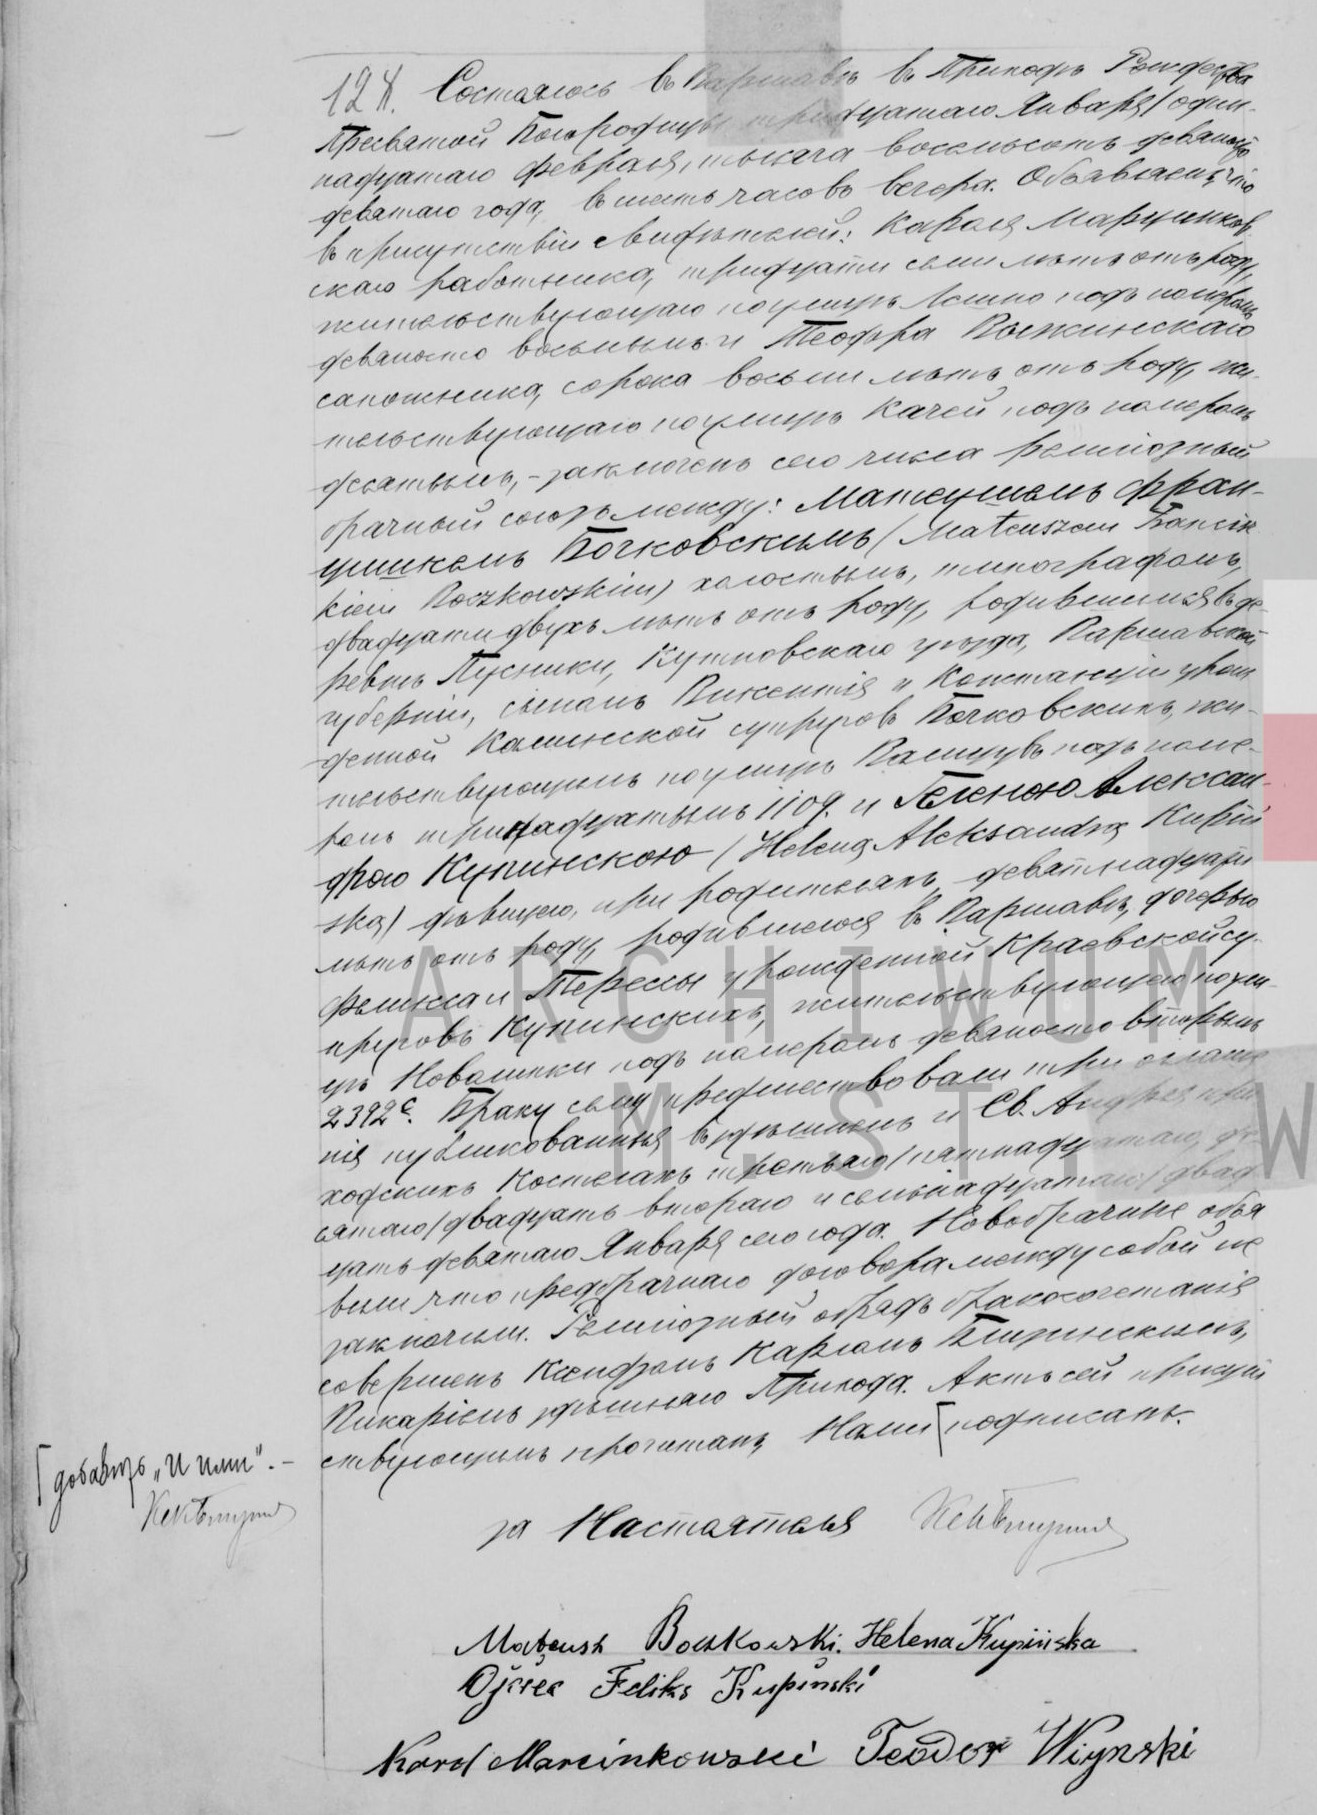 124. Состоялось въ Варшавѣ въ Приходѣ Рождества
Пресвятой Богородицы тридцатаго Января / один-
надцатаго Февраля, тысяча восемьсотъ девяносто
девятаго года, въ шесть часовъ вечера. Объявляемъ, что
въ присутствіи свидѣтелей: Кароля Марцинков
скаго работника, тридцати семи лѣтъ отъ роду,
жительствующаго по улицѣ Лешно подъ номеромъ
девяносто восьмымъ и Теодора
сапожника, сорока восьми лѣтъ отъ роду, жи-
тельствующаго по улицѣ Качей подъ номеромъ
десятымъ, - заключенъ сего числа религіозный
брачный союзъ между: Матеушемъ Фран-
цишкомъ Бочковскимъ / Mateuszem Francisz
kiem Boczkowskim) холостымъ, типографомъ,
двадцати двухъ лѣтъ отъ роду, родившимся въ де-
ревнѣ Пусники, Кутновскаго уѣзда, Варшавской
губерніи, сыномъ Викентія и Констанціи урож
денной Калинской супруговъ Бочковскихъ, жи-
тельствующимъ по улицѣ Валицувъ подъ номе-
ромъ тринадцатымъ 1109. и Геленою Алексан-
дрою Купинскою / Heleną Aleksandrą Kupiń
ską) дѣвицею, при родителяхъ, девятнадцати
лѣтъ отъ роду, родившеюся въ Варшавѣ, дочерью
Феликса и Терессы урожденной Краевской су-
пруговъ Купинскихъ, жительствующею по ули-
цѣ Новолипки подъ номеромъ девяносто вторымъ
2392с. Браку сему предшествовали три оглаше
нія публикованныя въ здѣшнемъ и Св. Андрея при
ходскихъ Костелахъ третьяго / пятнадцатаго, де-
сятаго / двадцать втораго и семнадцатаго / двад
цать девятаго Января сего года. Новобрачные объя
вили что предбрачнаго договора между собой не
заключили. Религіозный обрядъ бракосочетанія
совершенъ Ксендзомъ Карломъ
Викаріемъ здѣшняго Прихода. Актъ сей присут
ствующимъ прочитанъ, Нами ⌈ подписанъ.
⌈ добавить „и ими“. -
за Настоятеля
Mateusz Boczkowski. Helena Kupińska
Ojciec Feliks Kupiński
Karol Marcinkowski Teodor
ARCHIWUM
M. ST. W